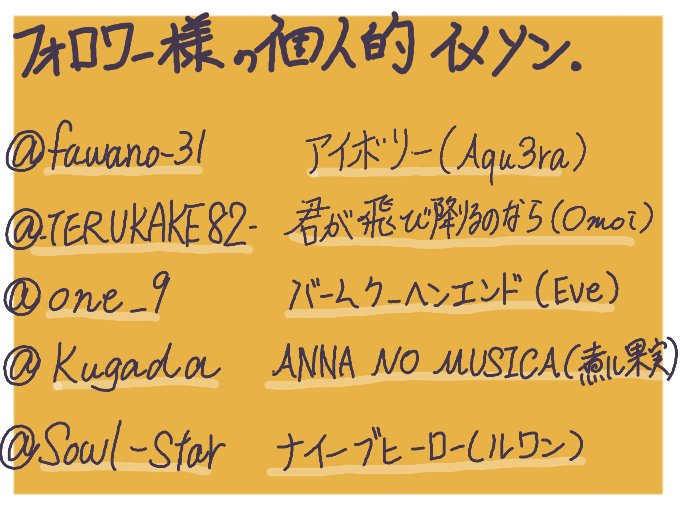 フォロワー様の個人的イメソン.
@fawano-31 アイボリー(Aqu3ra)
@-TERUKAKE82- 君が飛び降りるのなら(Omoi)
@one_9 バームクーヘンエンド(Eve)
@Kugada ANNA NO MUSICA(煮ル果実)
@Sowl-Star ナイーブヒーロー(ルワン)